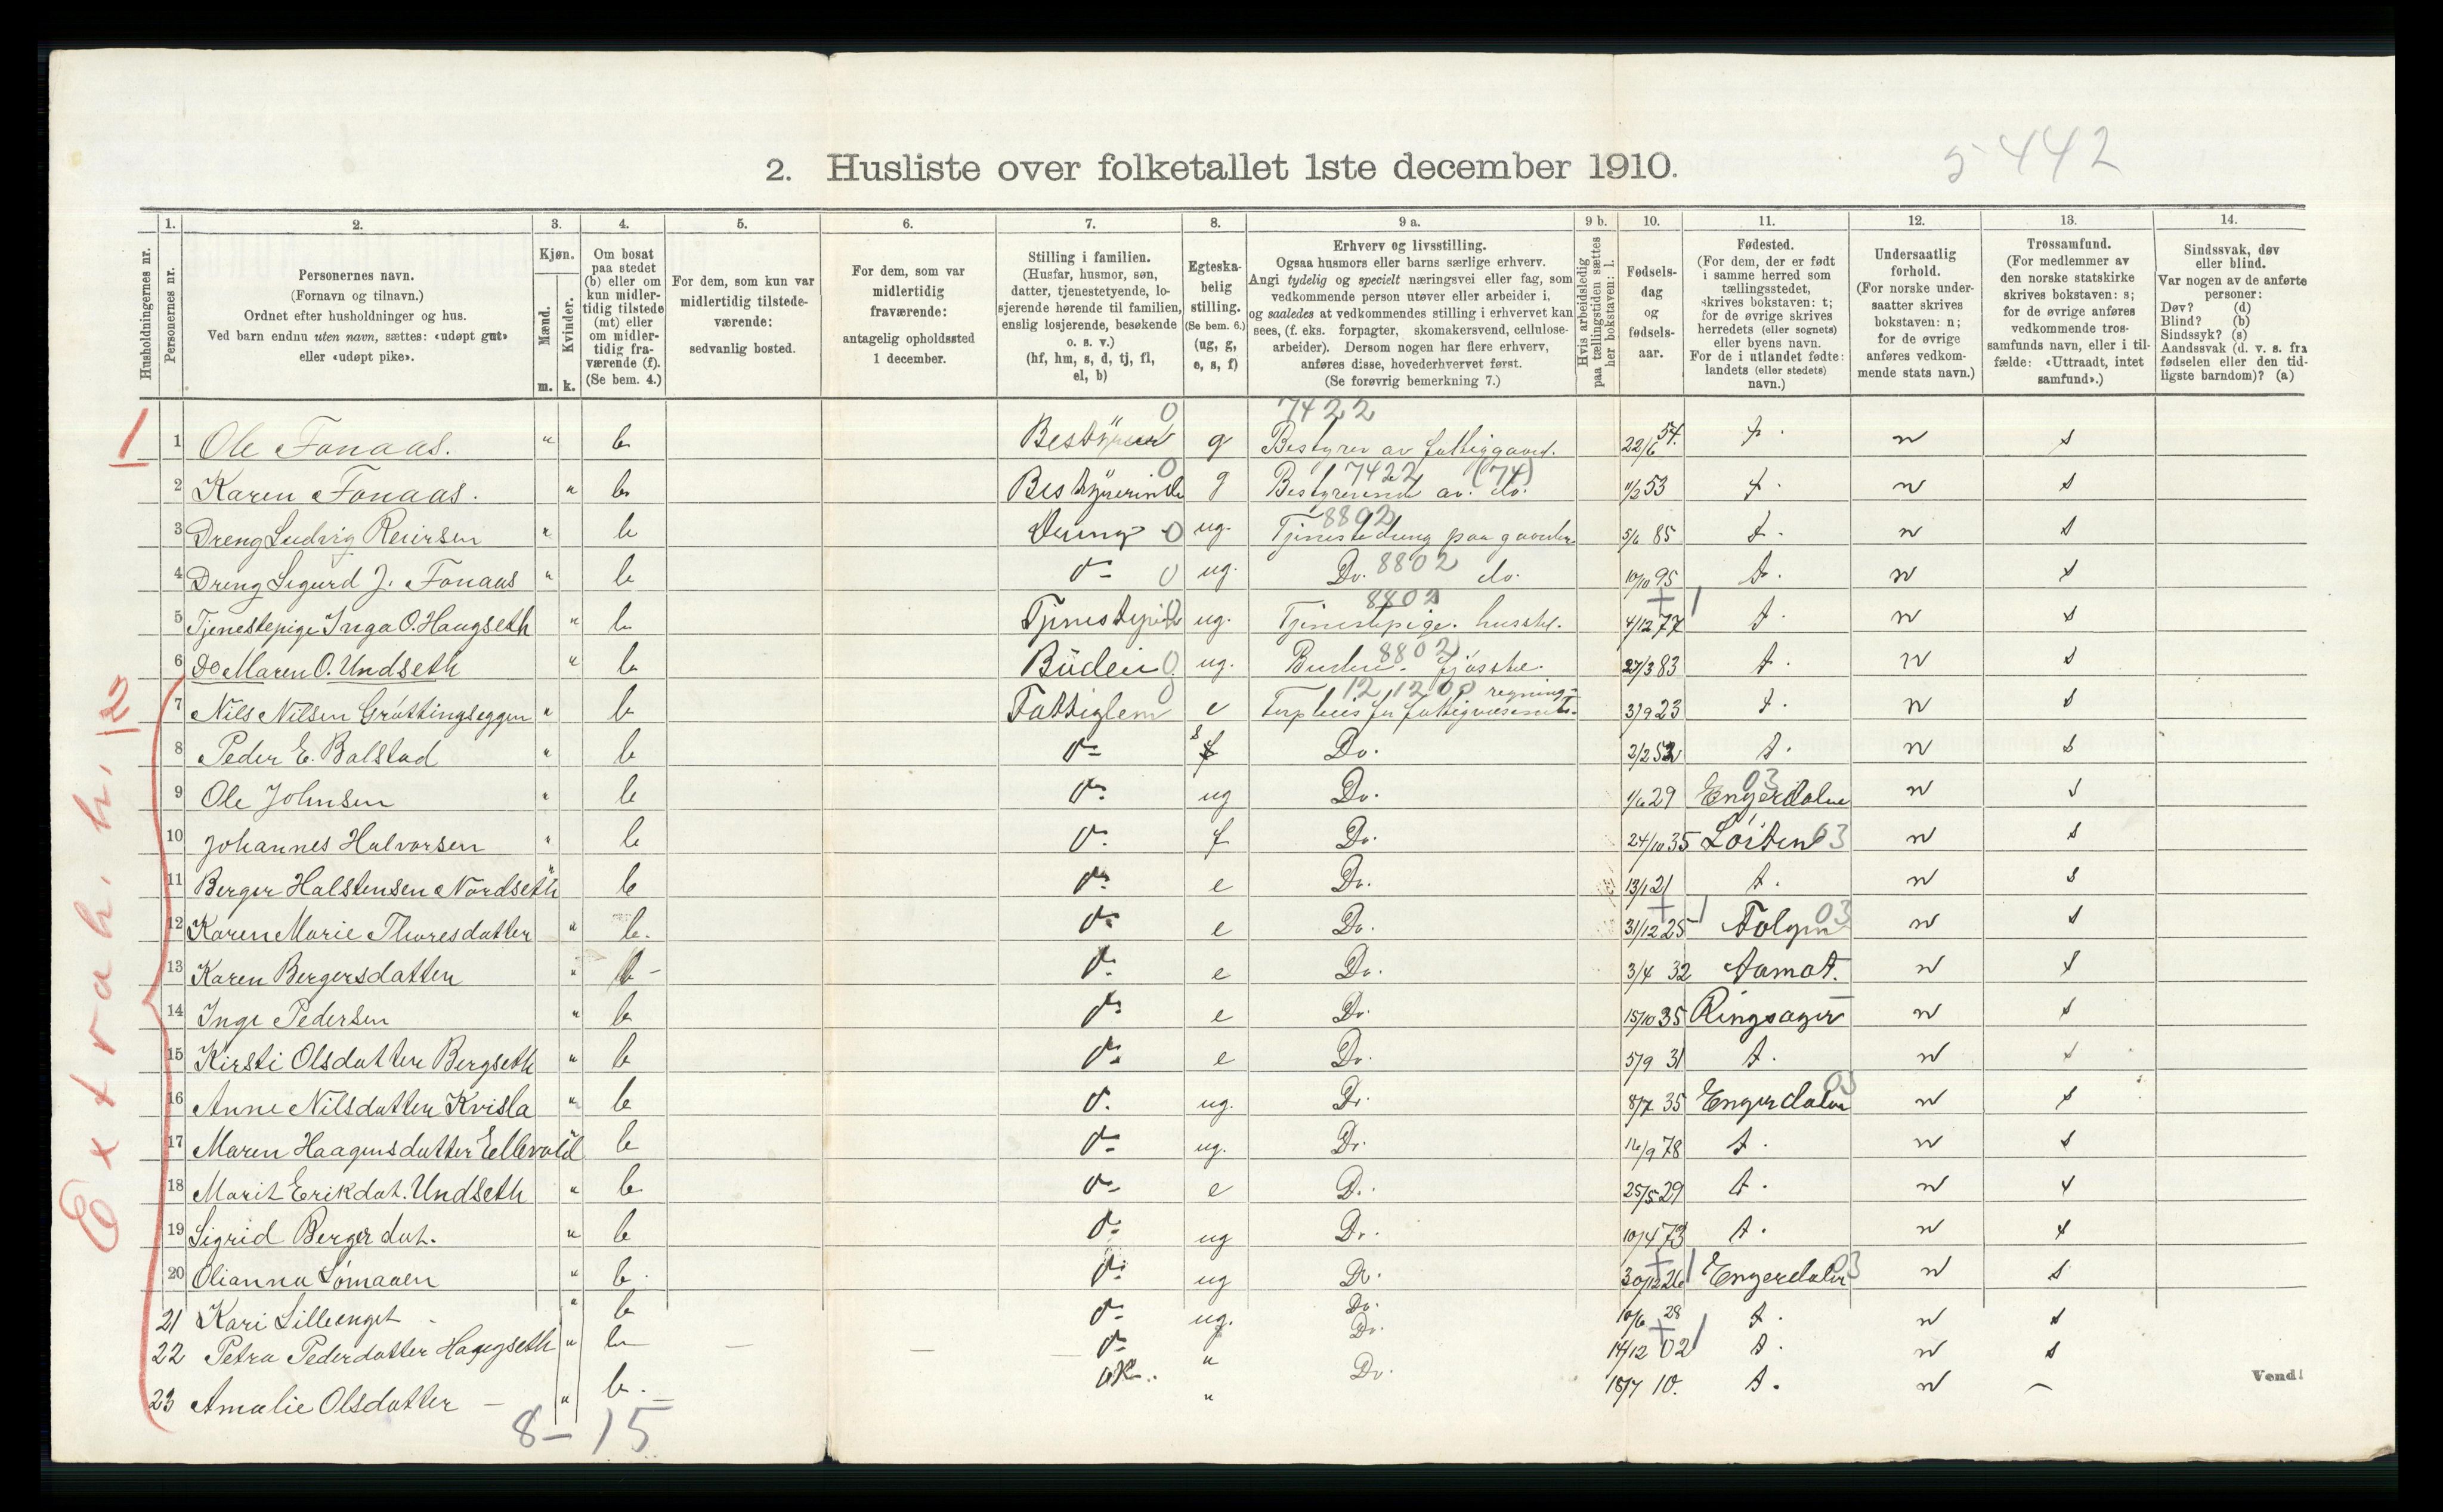 2. Husliste over folketallet 1ste december 1910.
5442
Husholdningernes nr.
1. Personernes nr.
2. Personernes navn.
(Fornavn og tilnavn.)
Ordnet efter husholdninger og hus.
Ved barn endnu uten navn, sættes: «udøpt gut»
eller «udøpt pike».
3. Kjøn.
Mænd. m.
Kvinder. k.
4. Om bosat
paa stedet
(b) eller om
kun midler-
tidig tilstede
(mt) eller
om midler-
tidig fra-
værende (f).
(Se bem. 4.)
5. For dem, som kun var
midlertidig tilstede-
værende:
sedvanlig bosted.
6. For dem, som var
midlertidig
fraværende:
antagelig opholdssted
1 december.
7. Stilling i familien.
(Husfar, husmor, søn,
datter, tjenestetyende, lo-
sjerende hørende til familien,
enslig losjerende, besøkende
o. s. v.)
(hf, hm, s, d, tj, fl,
el, b)
8. Egteska-
belig
stilling.
(Se bem. 6.)
(ug, g,
e, s, f)
9 a. Erhverv og livsstilling.
Ogsaa husmors eller barns særlige erhverv.
Angi tydelig og specielt næringsvei eller fag, som
vedkommende person utøver eller arbeider i,
og saaledes at vedkommendes stilling i erhvervet kan
sees, (f. eks. forpagter, skomakersvend, cellulose-
arbeider). Dersom nogen har flere erhverv,
anføres disse, hovederhvervet først.
(Se forøvrig bemerkning 7.)
9 b. Hvis arbeidsledig
paa tællingstiden sættes
her bokstaven: l.
10. Fødsels-
dag
og
fødsels-
aar.
11. Fødested.
(For dem, der er født
i samme herred som
tællingsstedet,
skrives bokstaven: t;
for de øvrige skrives
herredets (eller sognets)
eller byens navn.
For de i utlandet fødte:
landets (eller stedets)
navn.)
12. Undersaatlig
forhold.
(For norske under-
saatter skrives
bokstaven: n;
for de øvrige
anføres vedkom-
mende stats navn.)
13. Trossamfund.
(For medlemmer av
den norske statskirke
skrives bokstaven: s;
for de øvrige anføres
vedkommende tros-
samfunds navn, eller i til-
fælde: «Uttraadt, intet
samfund».)
14. Sindssvak, døv
eller blind.
Var nogen av de anførte
personer:
Døv? (d)
Blind? (b)
Sindssyk? (s)
Aandssvak (d. v. s. fra
fødselen eller den tid-
ligste barndom)? (a)
1 1 Ole Fonaas. " b 0 g 7422 Bestyrer av fattiggaard. 22/6 54. t. n s
2 Karen Fonaas. " b Bestyrerinde 0 g 7422 (74) Bestyrerinde av do. 53 t. n s
3 Dreng Ludvig Reiersen " b 0 ug. 8802 Tjenestedreng paa gaarden 5/6 85 t. n s
4 Dreng Sigurd J. Fonaas " b 0 ug. Do. 8802 do. 10/10 95 t. n s
5 Tjenestepige Inga O. Haugseth " b Tjenestepige ug. 8802 Tjenestepige. husstel. 4/12 77 t. n s
6 Do Maren O. Undseth " b Budeie 0 ug. 8802 Budeie. fjøsstel. 27/3 83 t. n s
7 Nils Nilsen Grøttingseggen " b Fattiglem e 12,1200 Forpleies for fattigvæsenets regning 3/9 23 t. n s
8 Peder E. Bolstad " b do s Do. 2/2 52 t. n s
9 Ole Johnsen " b do ug Do. 1/6 29 Engerdalen 03 n s
10 Johannes Halvorsen " b do f Do. 24/10 35 Løiten 03 n s
11 Berger Halstensen Nordseth " b do e Do. 13/1 21 t. n s
12 Karen Marie Thoresdatter " b. do e Do. 31/12 25 Tolgen 03 n s
13 Karen Bergersdatter " b do e Do. 3/4 32 Aamot. n s
14 Inge Pedersen " b do e Do. 15/10 35 Ringsager n s
15 Kirsti Olsdatter Bergseth " b do e Do. 5/9 31 t. n s
16 Anne Nilsdatter Kvisla " b do ug. Do. 8/7 35 Engerdalen 03 n s
17 Maren Haagensdatter Ellevold " b do ug. Do. 16/9 78 t. n s
18 Marit Erikdat. Undseth " b do e Do. 25/5 29 t. n s
19 Sigrid Berger dat. " b do ug Do. 10/4 73 t. n s
20 Olianna Sømaaen " b. do ug Do. 30/12 26 Engerdalen 03 n s
21 Kari Lilleenget " b do ug. Do. 10/6 28 t. n s
22 Petra Pederdatter Haugseth " b do " Do. 14/12 02 t. n s
23 Amalie Olsdatter " b. " Do. 18/7 10. t. n –
8–15
Extrah. h. 12
Vend!